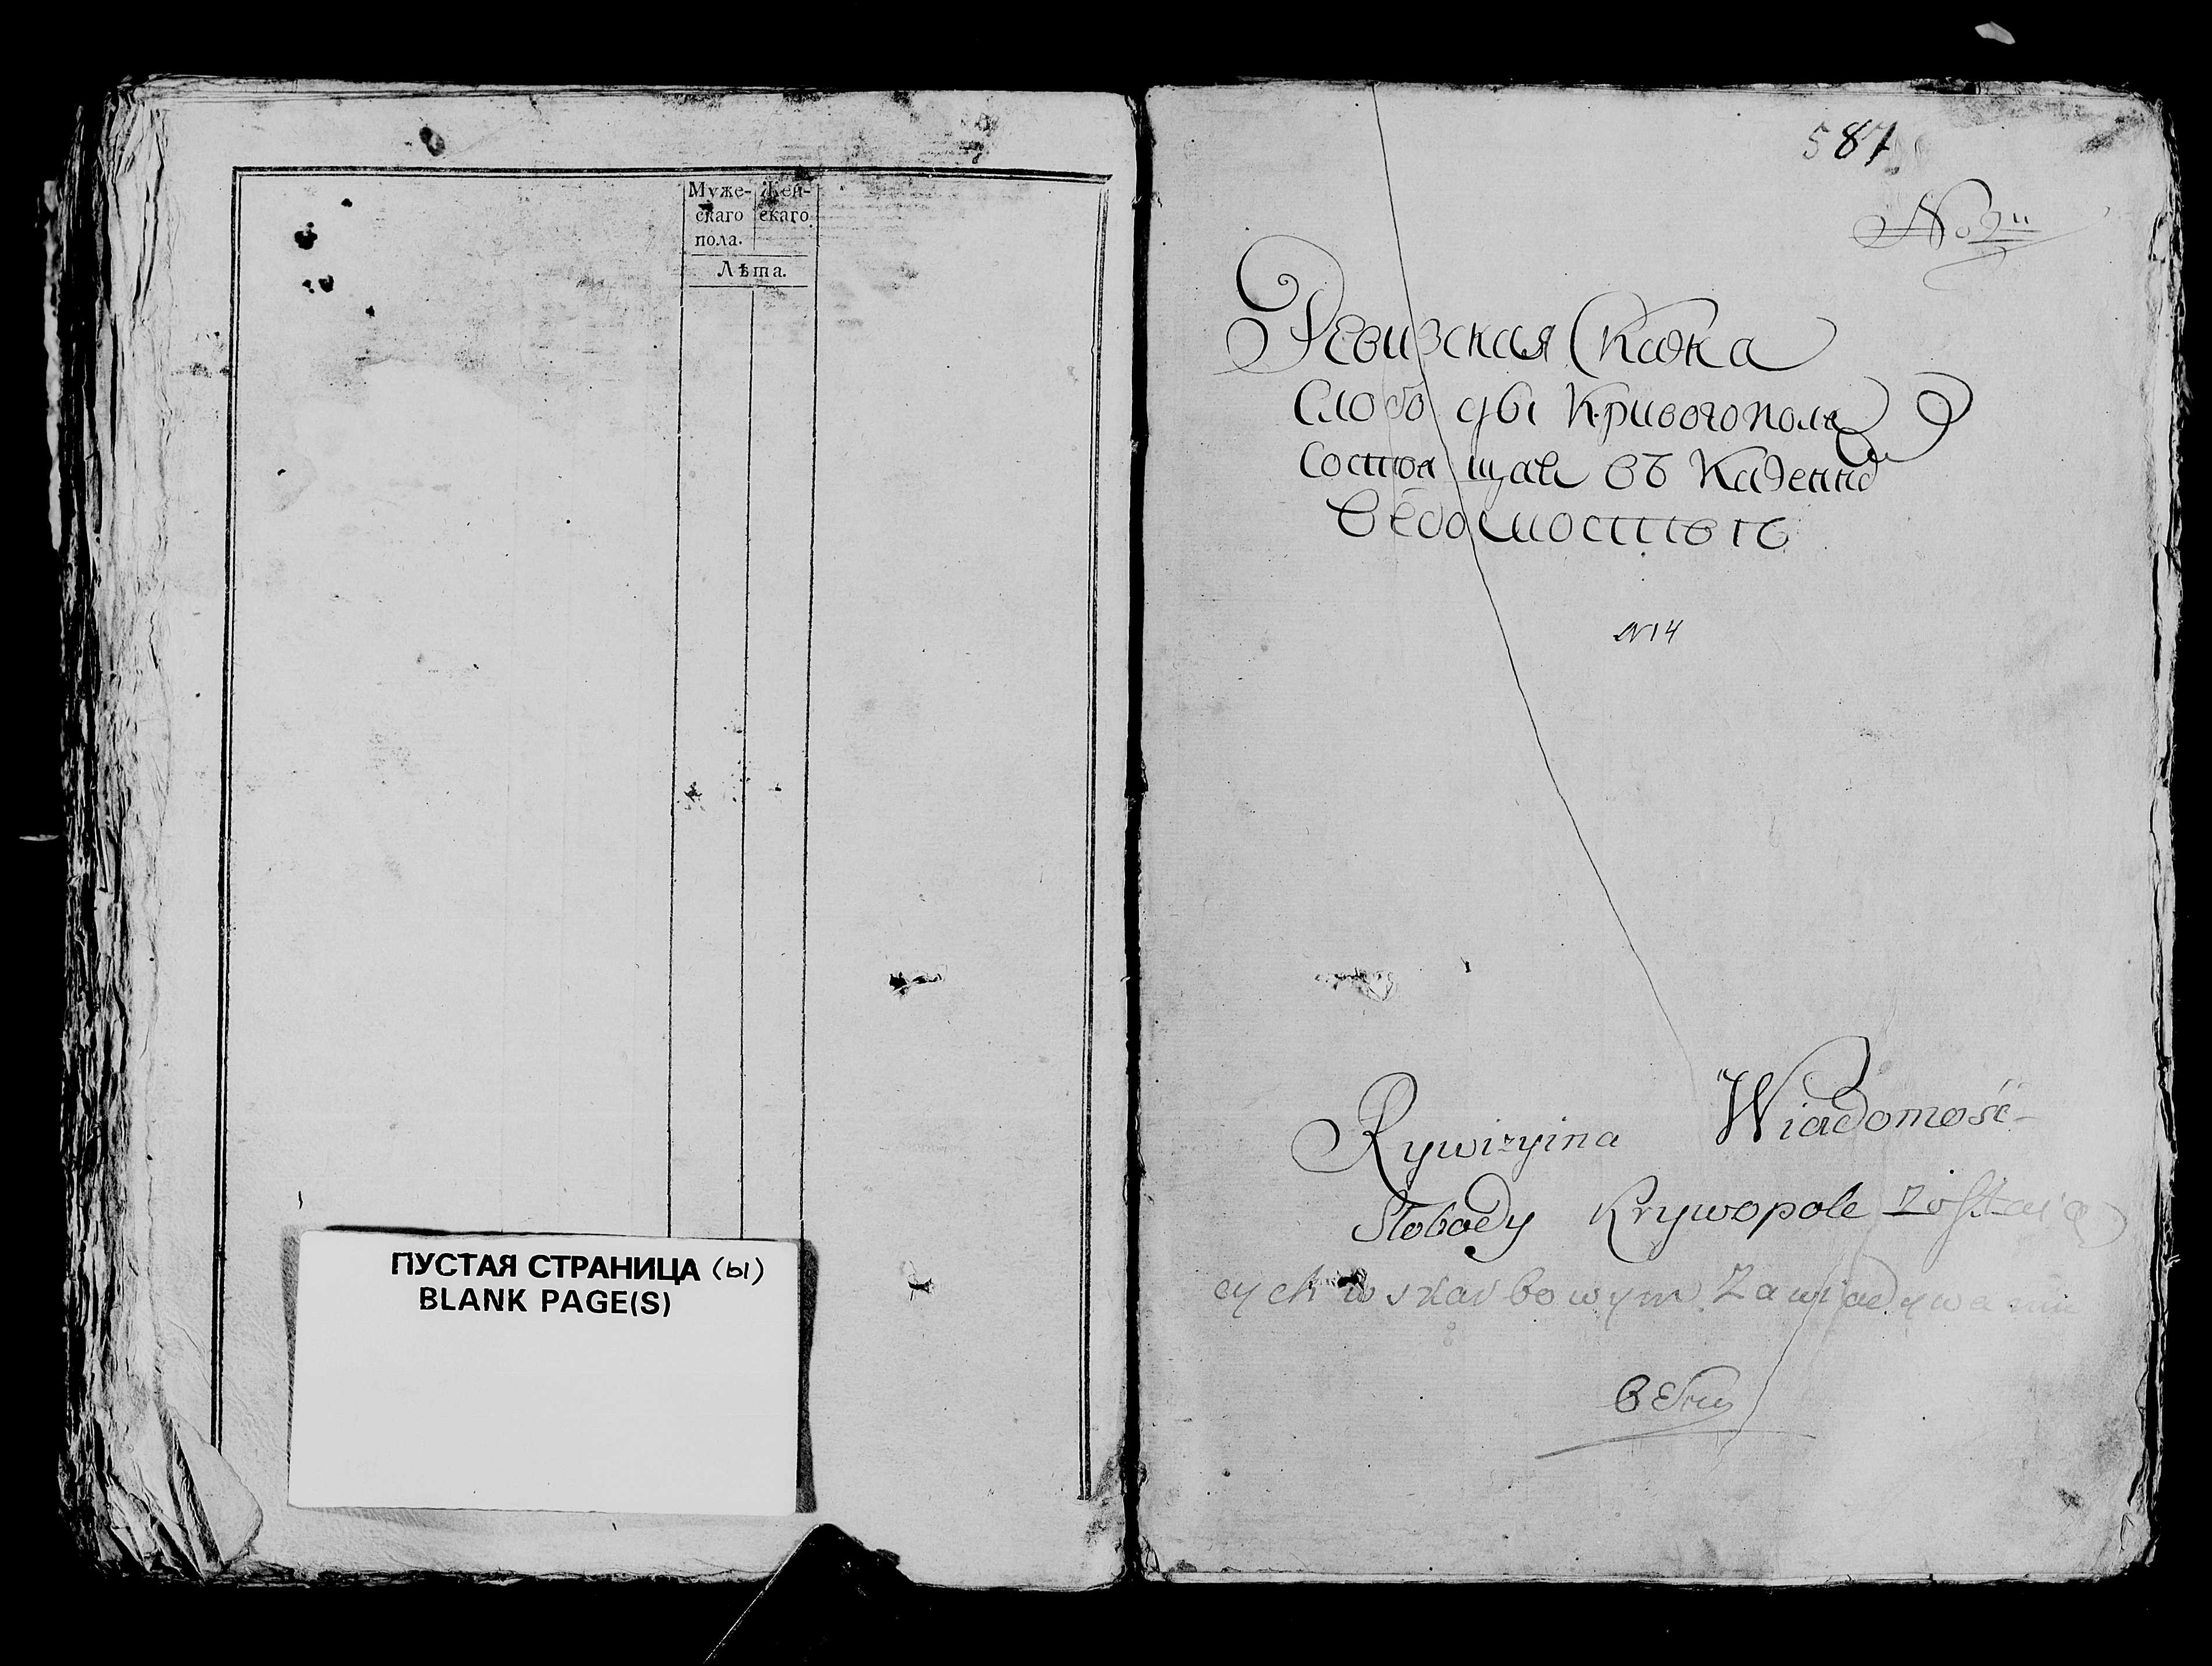 Муже- Жен-
скаго скаго
пола.
Лѣта.
ПУСТАЯ СТРАНИЦА (ы)
BLANK PAGE(S)
587
No 2
Ревизская Скаска
Слободы Кривогополя
состоящая въ Казенно
ведомостве
N 14
Rywizyina Wiadomość
Słobody Krywopole Zostaią
cych w skarbowym Zawiadywaniu